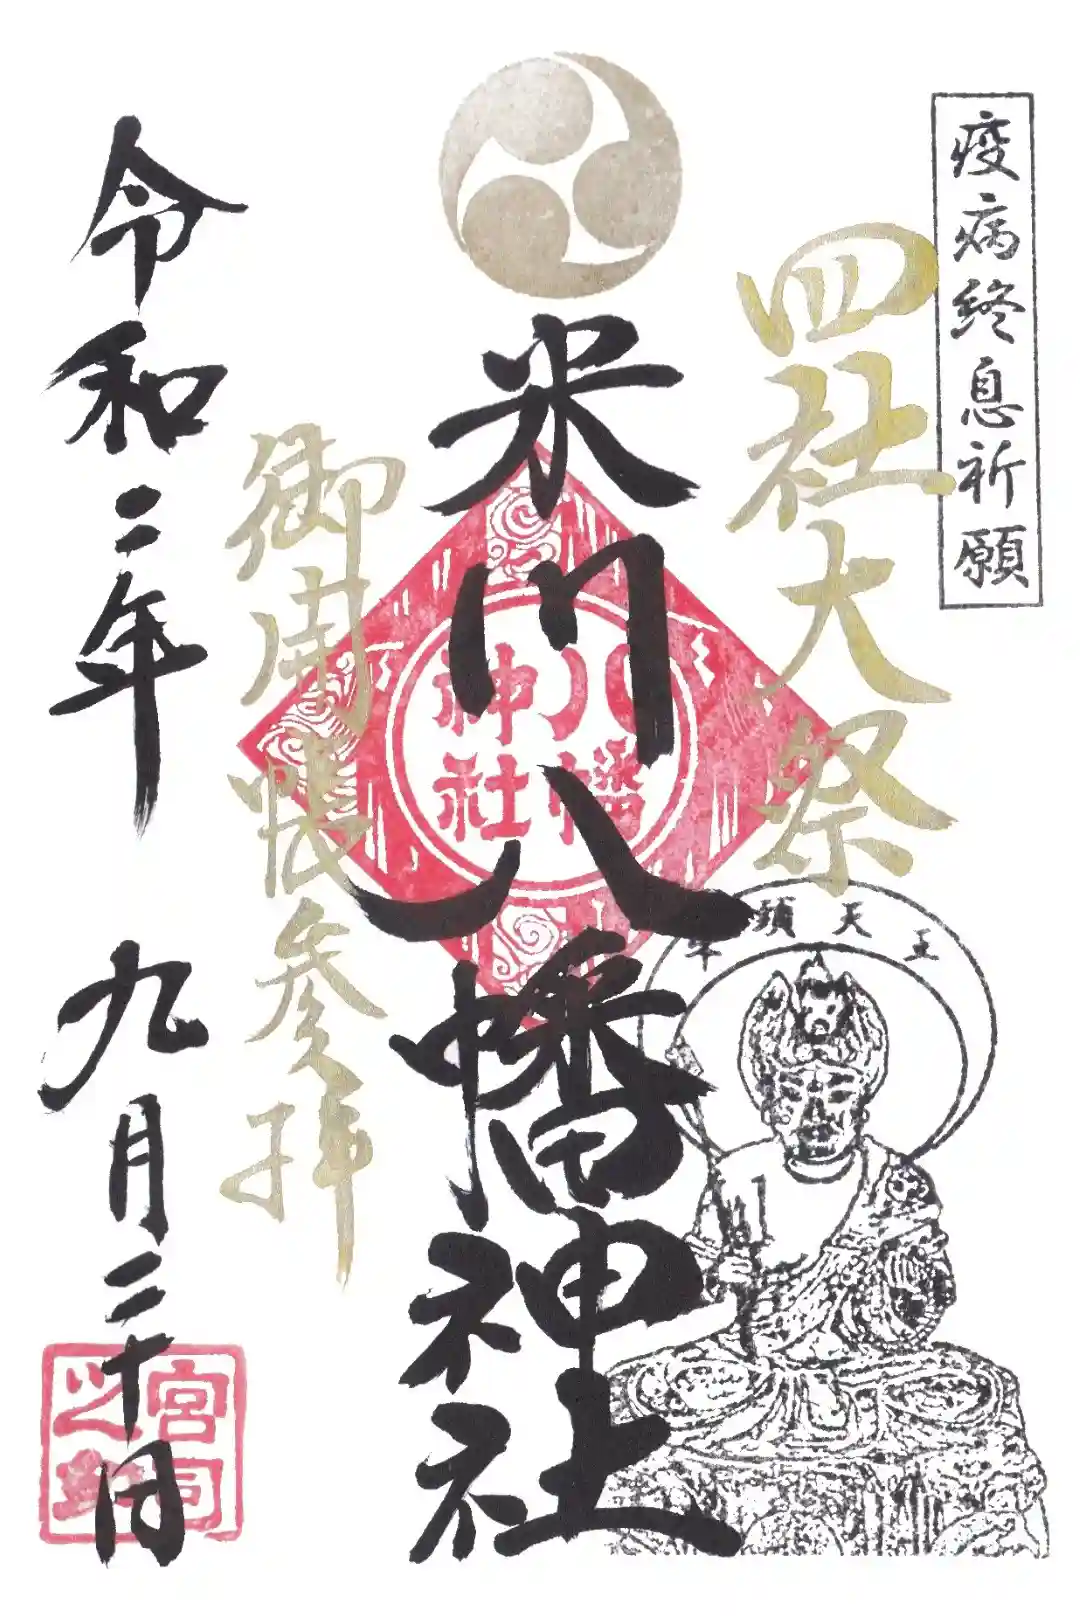 疫病終息祈願
四社大祭
牛頭天王
米川八幡神社
八幡
神社
御開帳参拝
令和二年 九月二十日
宮司
之印